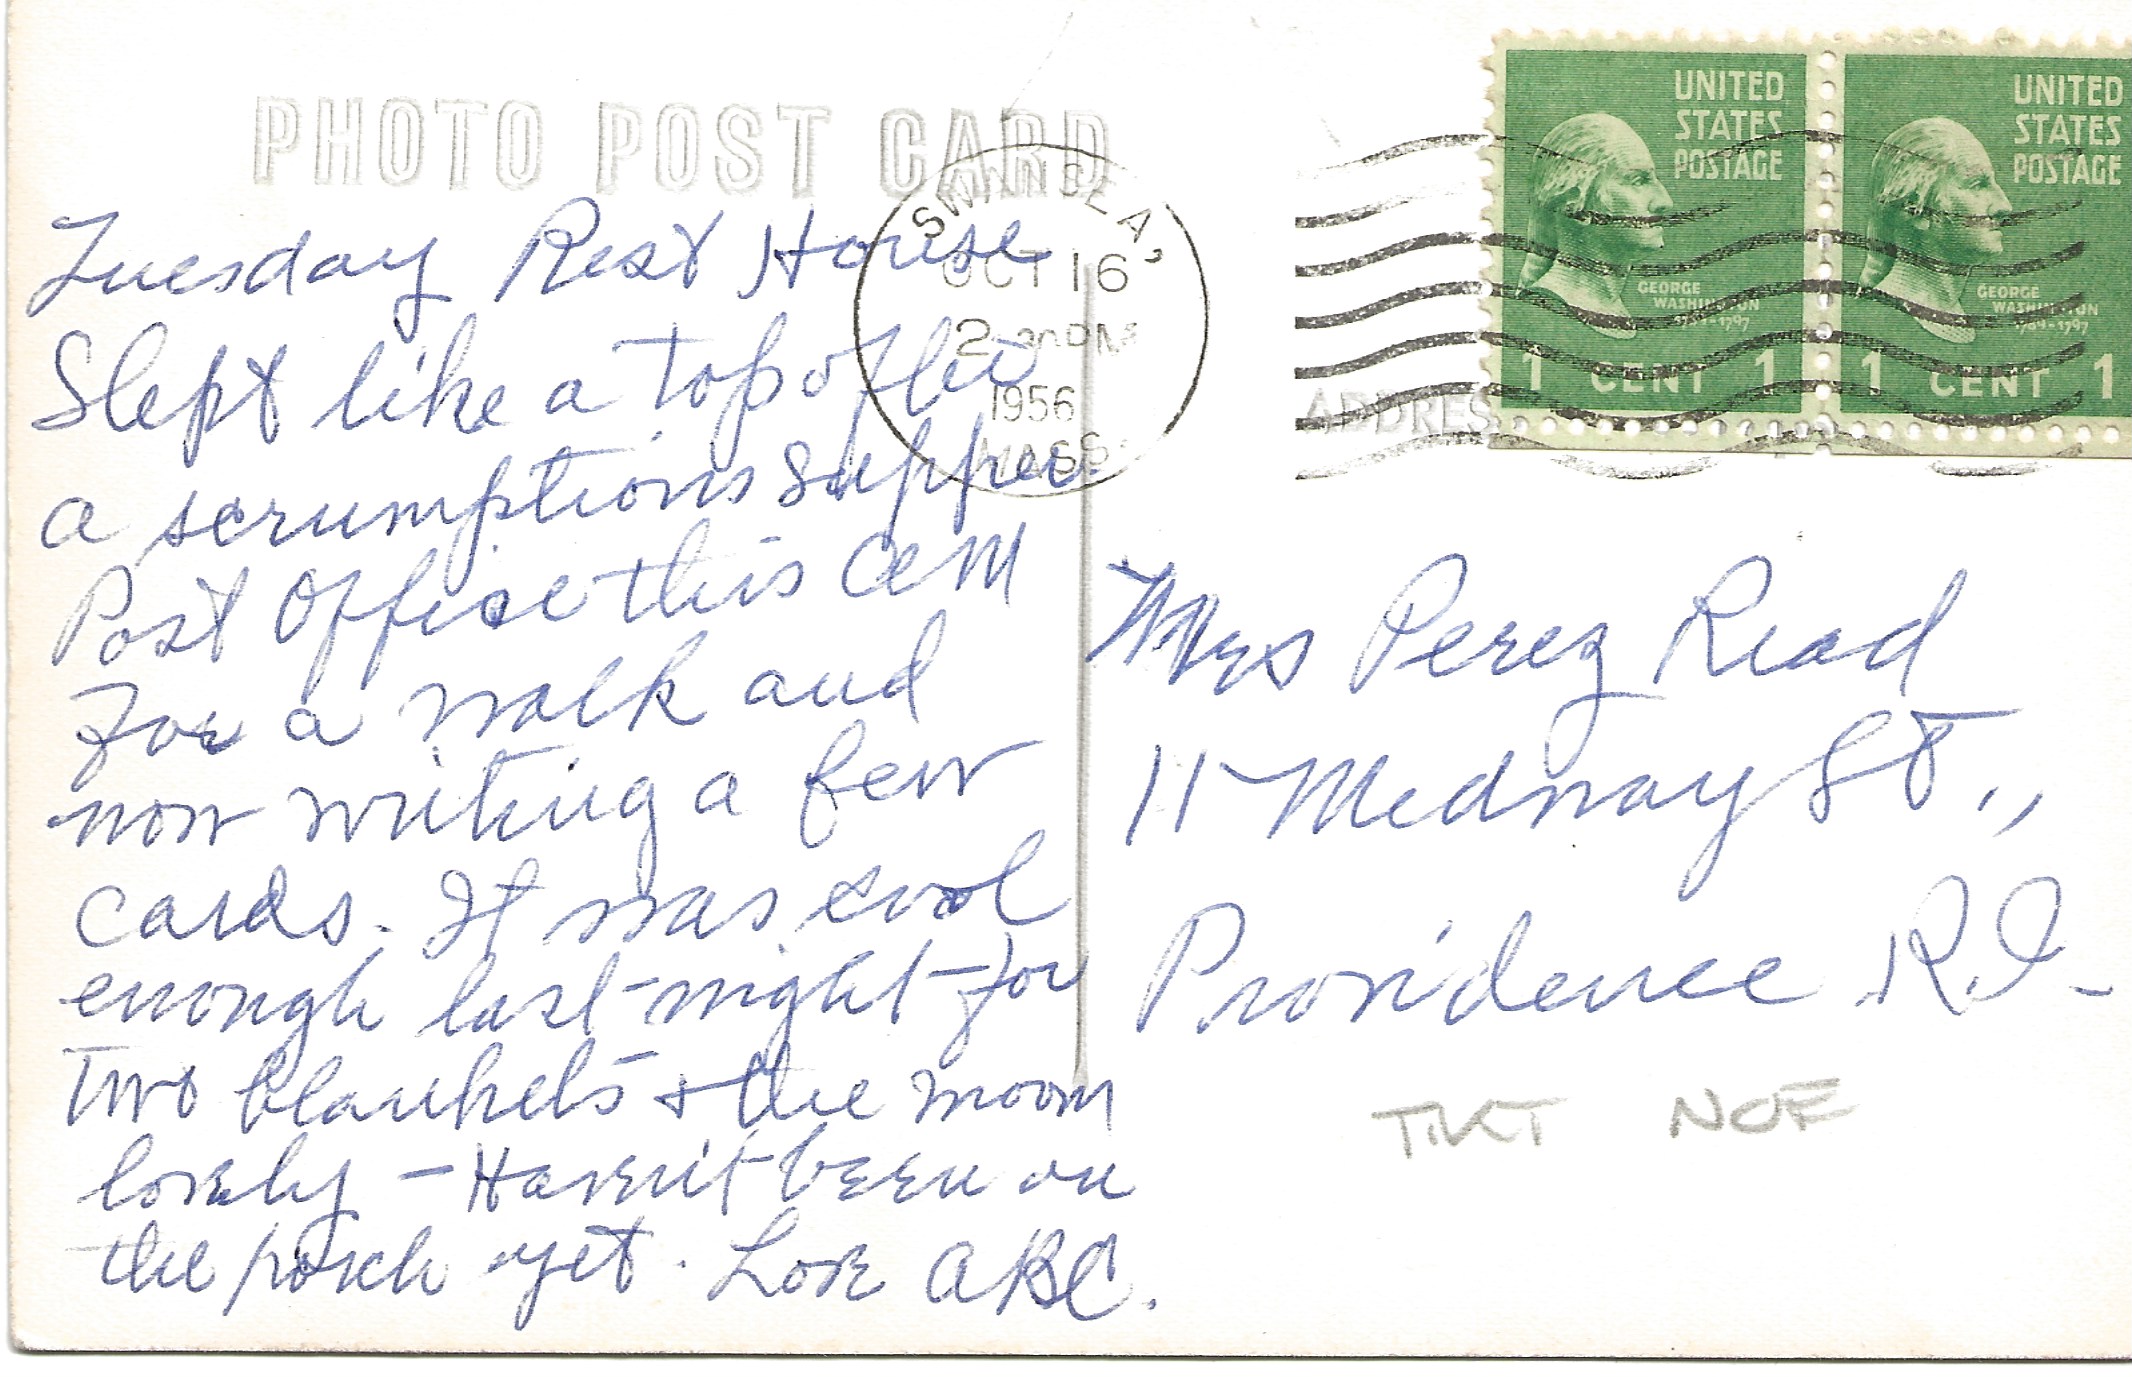 PHOTO POST CARD
Tuesday Rest House
Slept like a top after
a scrumptions supper.
Post Office this AM
for a walk and
now writing a few
cards. It was cool
enough last night for
two blankets + the moon
lovely - Haven't been on
the porch yet. Love ABC.
SWANSEA,
OCT 16
2 PM
1956
MASS.
UNITED
STATES
POSTAGE
GEORGE
WASHINGTON
1789-1797
1 CENT 1
UNITED
STATES
POSTAGE
GEORGE
WASHINGTON
1789-1797
1 CENT 1
ADDRES
Mrs Perez Read
11 Medway St.,
Providence R.I.